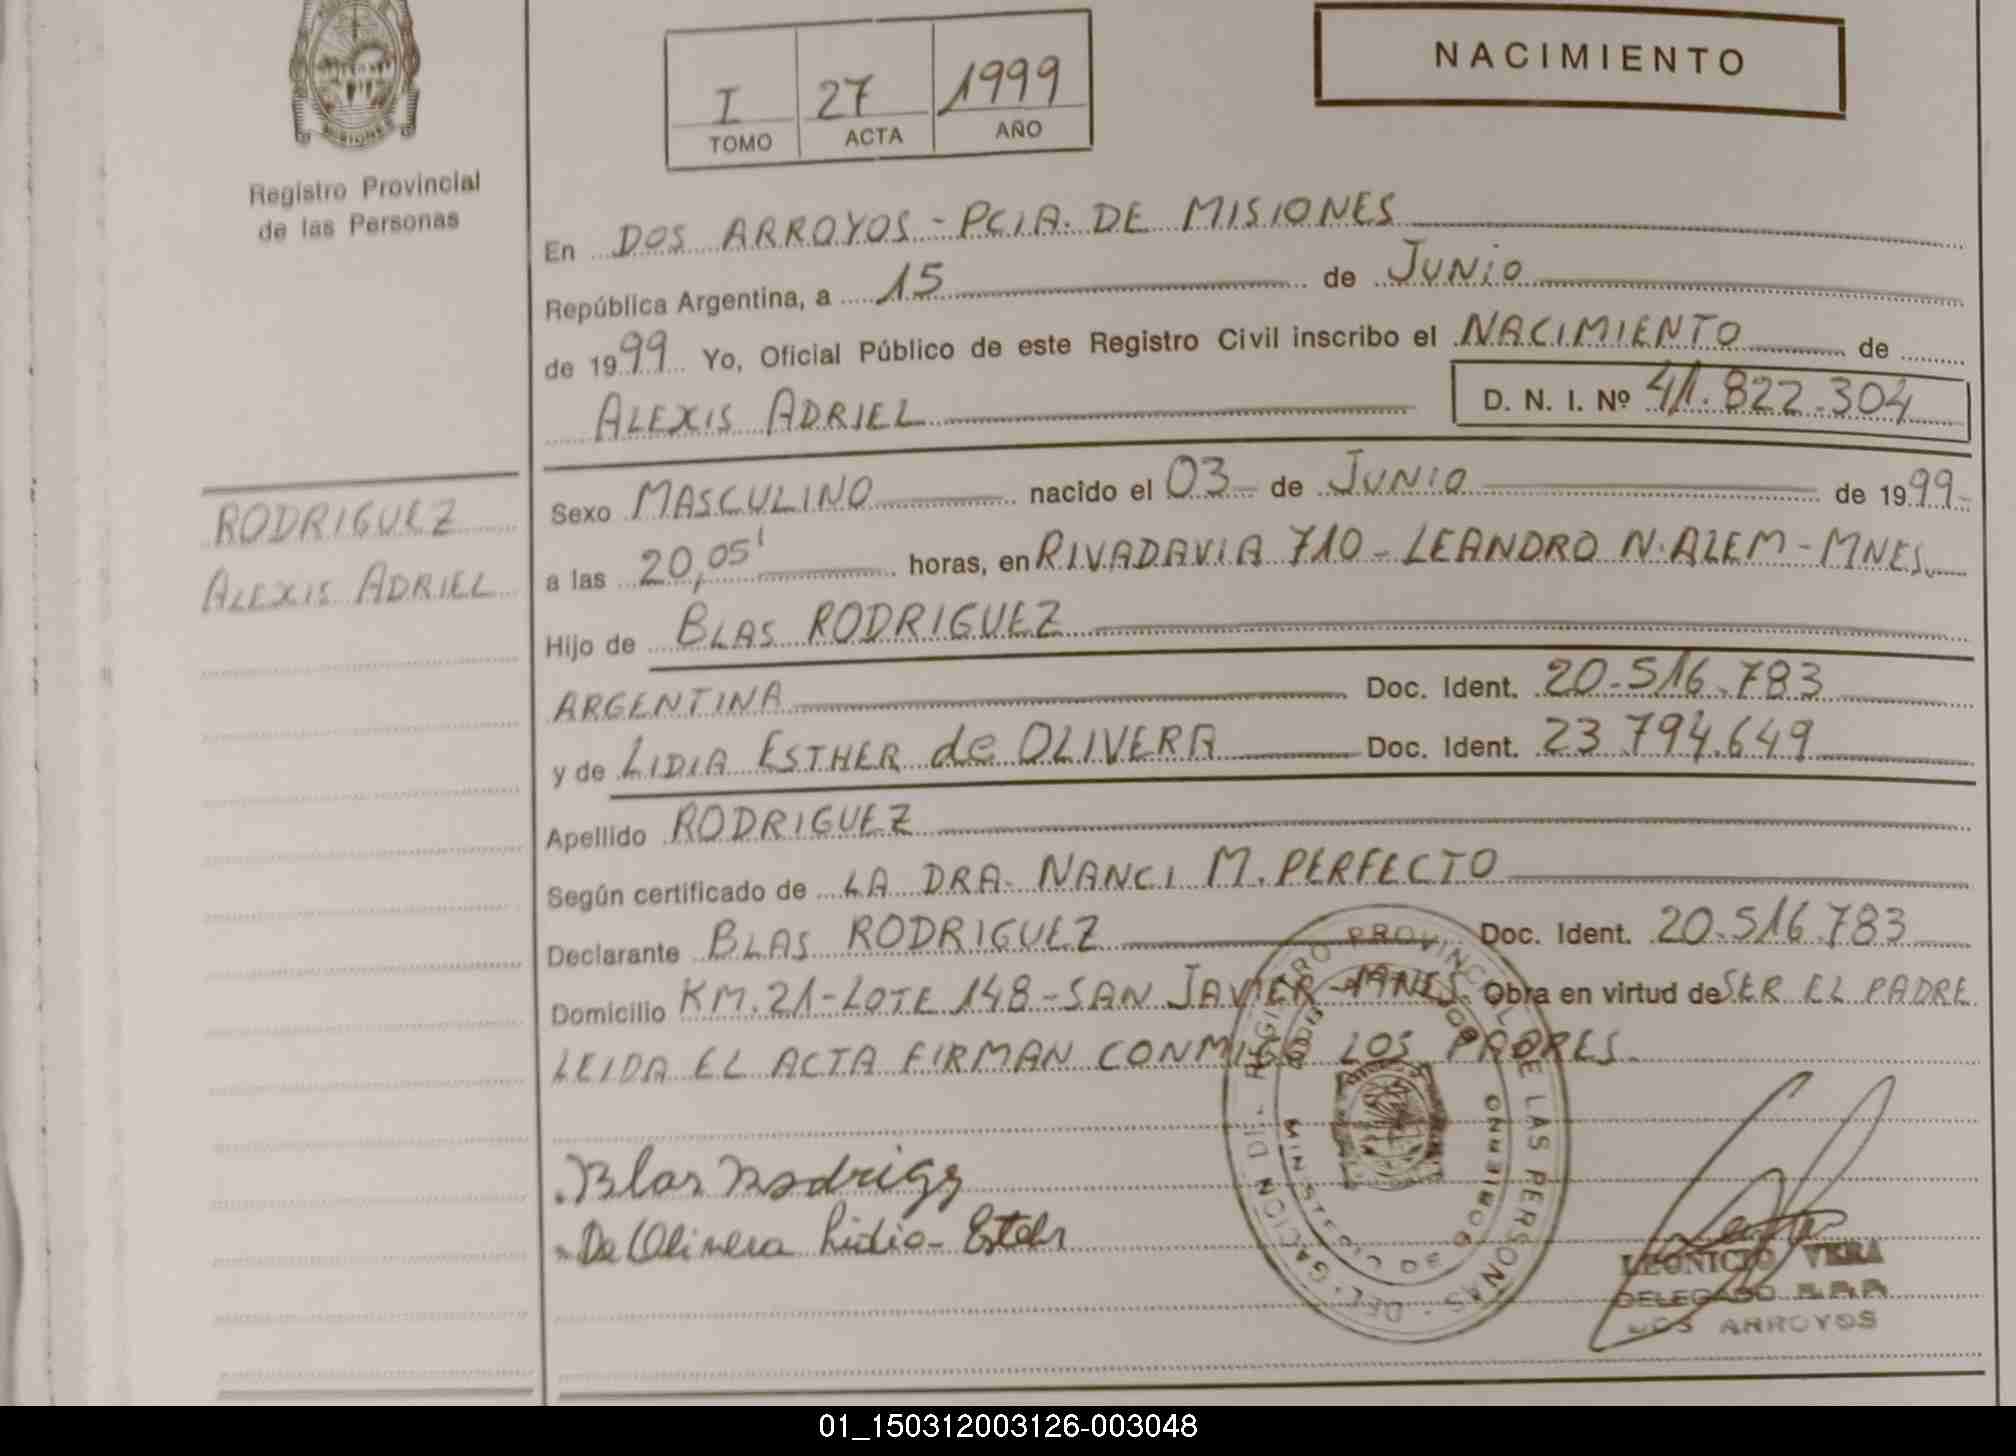 MISIONES
Registro Provincial
de las Personas
RODRIGUEZ
ALEXIS ADRIEL
I 27 1999
TOMO ACTA AÑO
NACIMIENTO
En DOS ARROYOS - PCIA. DE MISIONES
República Argentina, a 15 de JUNIO
de 1999 Yo, Oficial Público de este Registro Civil inscribo el NACIMIENTO de
ALEXIS ADRIEL D. N. I. Nº 41.822.304
Sexo MASCULINO nacido el 03 de JUNIO de 1999-
a las 20,05' horas, en RIVADAVIA 710 - LEANDRO N. ALEM - MNES.
Hijo de BLAS RODRIGUEZ
ARGENTINA Doc. Ident. 20.516.783
y de LIDIA ESTHER de OLIVERA Doc. Ident. 23.794.649
Apellido RODRIGUEZ
Según certificado de LA DRA. NANCI M. PERFECTO
Declarante BLAS RODRIGUEZ Doc. Ident. 20.516.783
Domicilio KM.21 - LOTE 148 - SAN JAVIER - MNES. Obra en virtud de SER EL PADRE
LEIDA EL ACTA FIRMAN CONMIGO LOS PADRES.
REGISTRO PROVINCIAL DE LAS PERSONAS
MINISTERIO DE GOBIERNO
Blas Rodrigz
De Olivera Lidia Esteher
LEONICIO VERA
DELEGADO R.P.P.
DOS ARROYOS
01_150312003126-003048